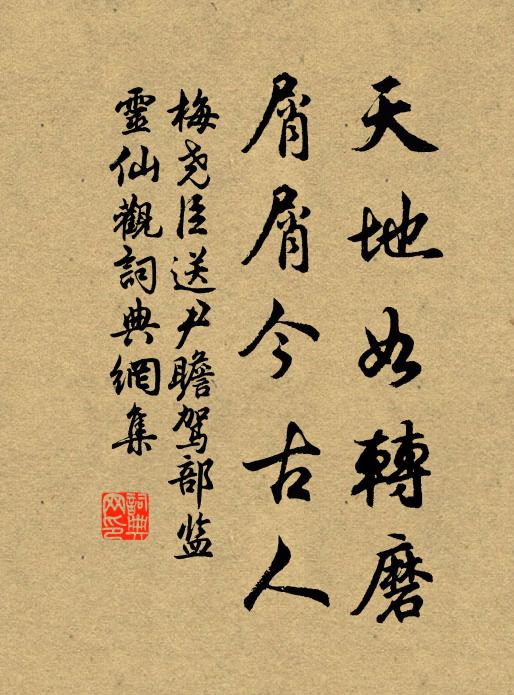 天地如轉磨
屑屑今古人
梅尧臣送尹瞻駕部监
靈仙觀詞典網集
詞典网印